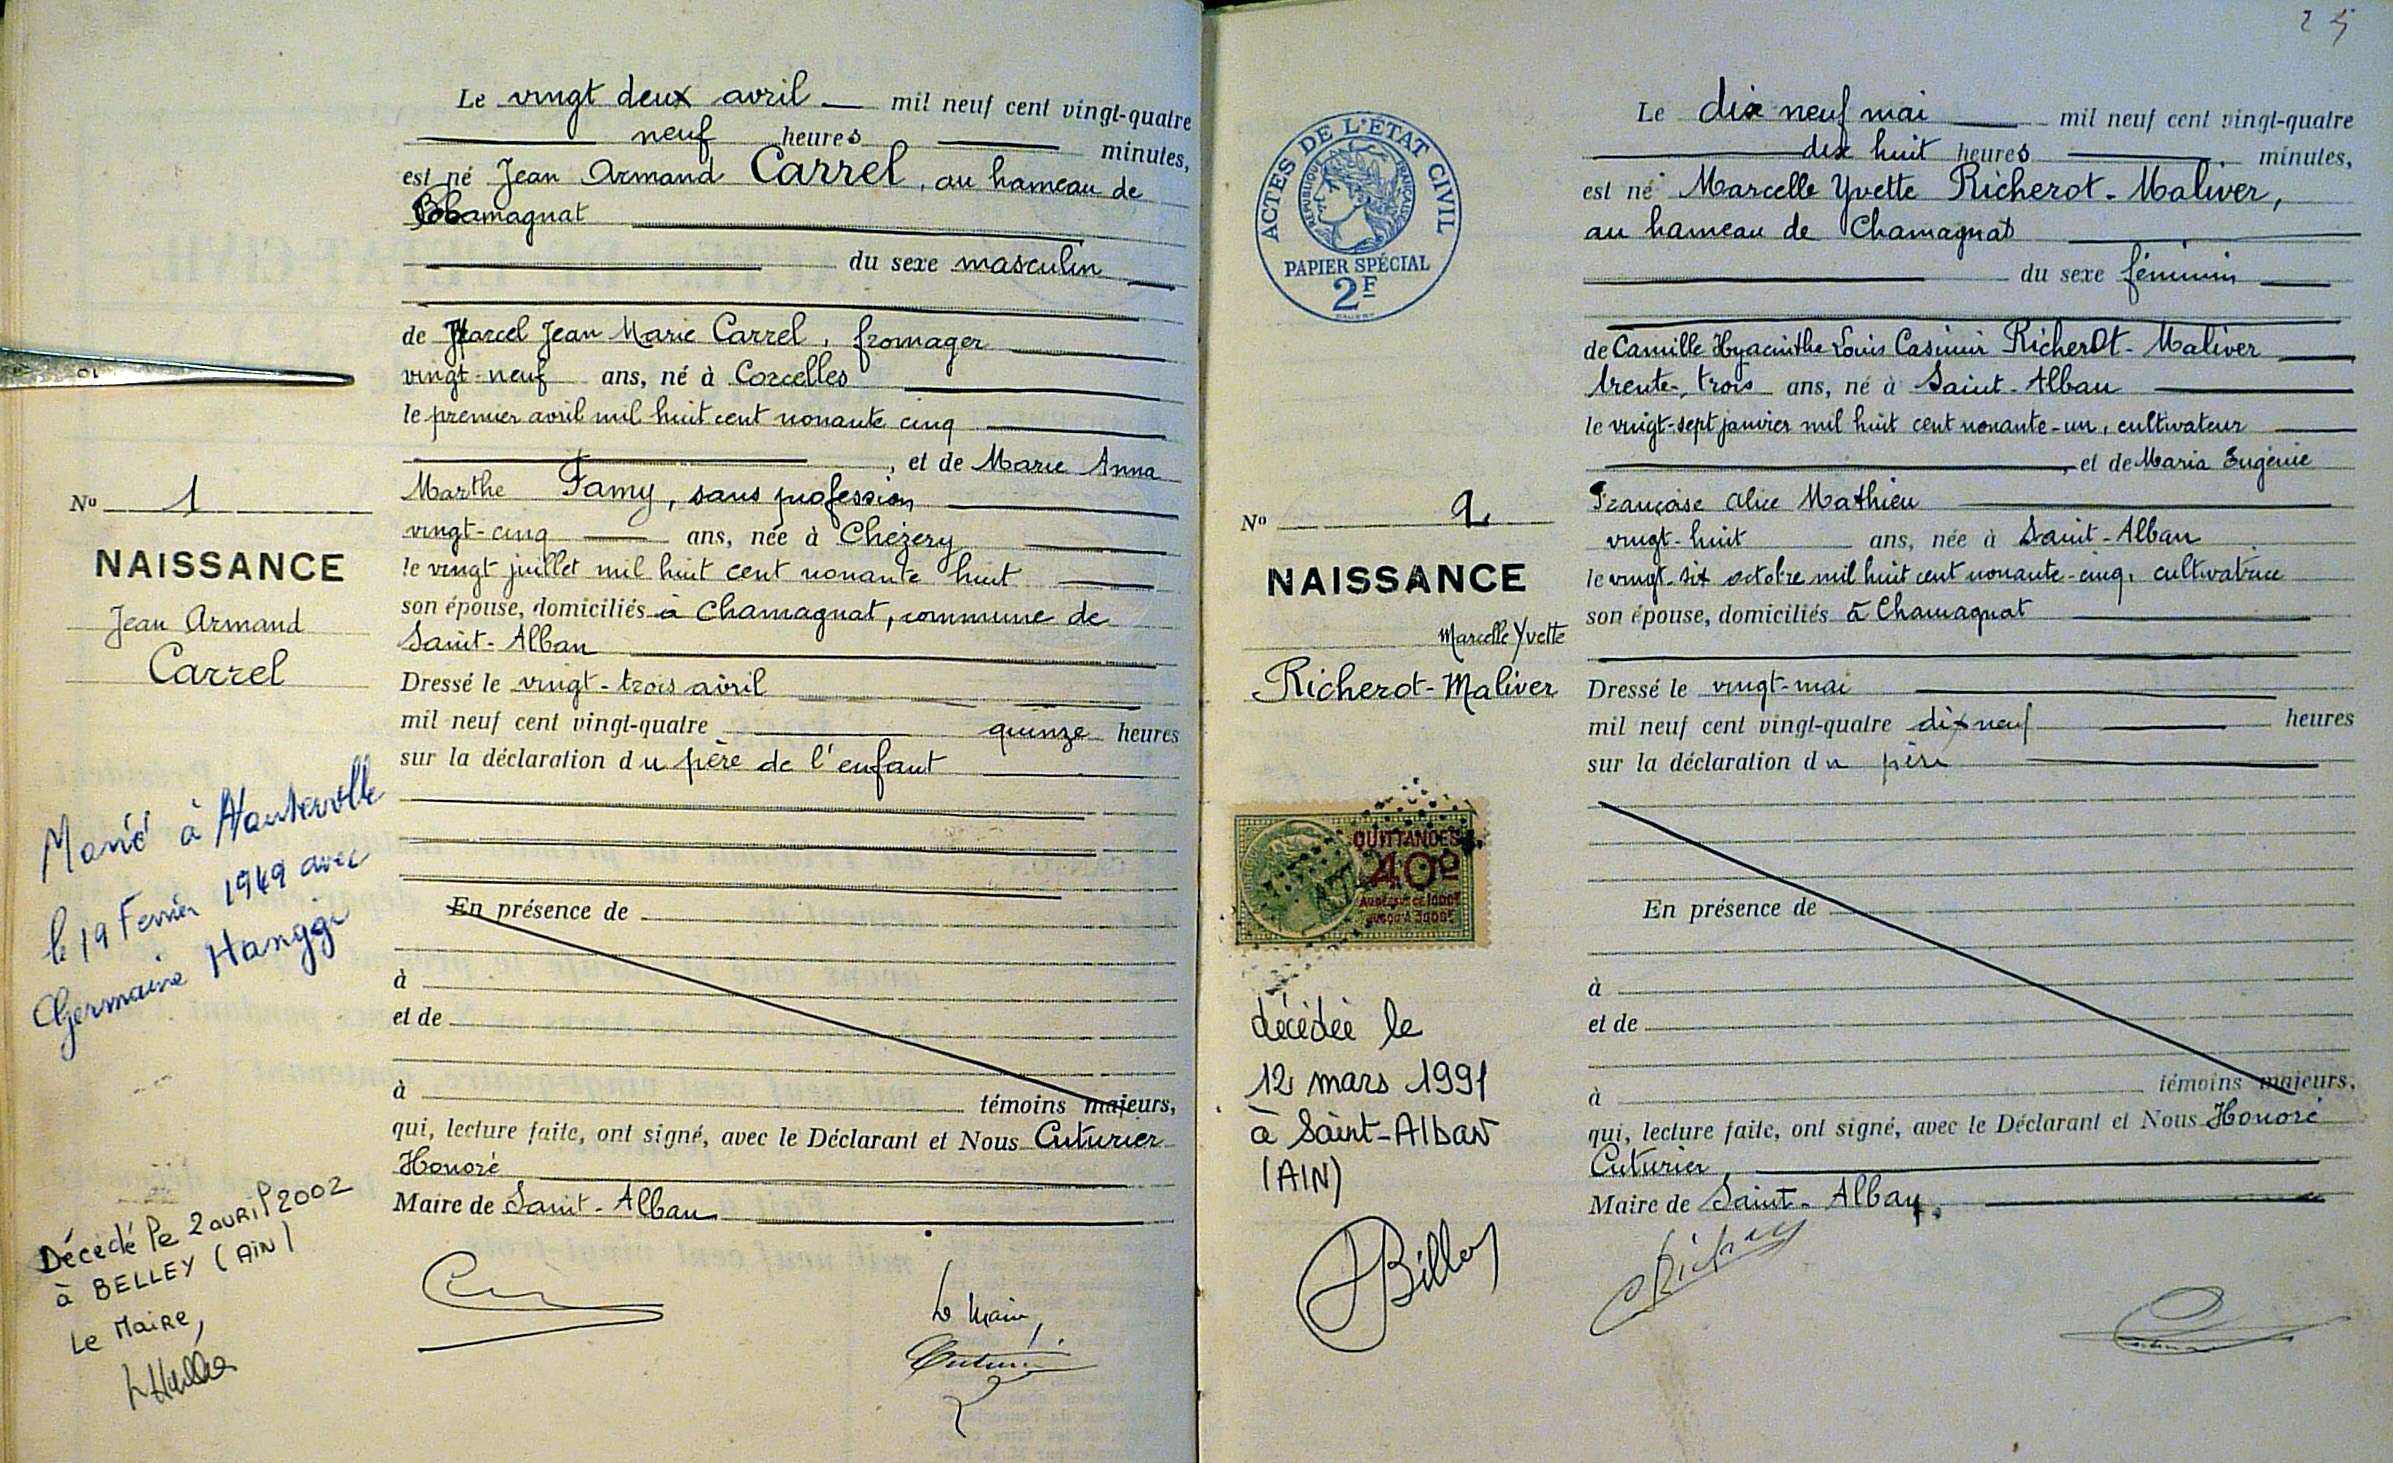 Le vingt deux avril mil neuf cent vingt-quatre
neuf heures minutes,
est né Jean Armand Carrel, au hameau de
Chamagnat
du sexe masculin
de Marcel Jean Marie Carrel, fromager
vingt-neuf ans, né à Corcelles
le premier avril mil huit cent nonante cinq
, et de Marie Anna
Marthe Famy, sans profession
vingt-cinq ans, née à Chézery
le vingt juillet mil huit cent nonante huit
son épouse, domiciliés à Chamagnat, commune de
Saint-Alban
Dressé le vingt-trois avril
mil neuf cent vingt-quatre quinze heures
sur la déclaration du père de l'enfant
En présence de
à
et de
à témoins majeurs,
qui, lecture faite, ont signé, avec le Déclarant et Nous Cuturier
Honoré
Maire de Saint-Alban
Le Maire,
Cuturier
No 1
NAISSANCE
Jean Armand
Carrel
Marié à Hauteville
le 19 Fevrier 1949 avec
Germaine Hanggi
Décédé le 2 avril 2002
à BELLEY (AIN)
Le Maire,
25
ACTES DE L'ÉTAT CIVIL
RÉPUBLIQUE FRANÇAISE
PAPIER SPÉCIAL
2F
No 2
NAISSANCE
Marcelle Yvette
Richerot-Maliver
QUITTANCES
40c
décédée le
12 mars 1991
à Saint-Alban
(AIN)
Billoy
Le dix neuf mai mil neuf cent vingt-quatre
dix huit heures minutes,
est né Marcelle Yvette Richerot-Maliver,
au hameau de Chamagnat
du sexe féminin
de Camille Hyacinthe Louis Casimir Richerot-Maliver
trente-trois ans, né à Saint-Alban
le vingt-sept janvier mil huit cent nonante-un, cultivateur
, et de Maria Eugénie
Françoise Alice Mathieu
vingt-huit ans, née à Saint-Alban
le vingt-six octobre mil huit cent nonante-cinq, cultivatrice
son épouse, domiciliés à Chamagnat
Dressé le vingt-mai
mil neuf cent vingt-quatre dix neuf heures
sur la déclaration du père
En présence de
à
et de
à témoins majeurs,
qui, lecture faite, ont signé, avec le Déclarant et Nous Honoré
Cuturier
Maire de Saint-Alban.